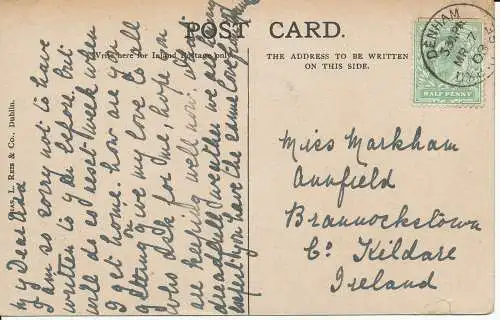 POST CARD.
Write here for Inland Postage only
THE ADDRESS TO BE WRITTEN
ON THIS SIDE.
DENHAM
MR 7
03
HALF PENNY
L. Rees & Co., Dublin.
My Dear
I am so sorry not to have
written to you before but
will do so next week when
I get home. how are you
getting on give my love to all
who ask for me, hope you
are keeping well now.
weather we are
have the same
Miss Markham
Annfield
Brannockstown
Co. Kildare
Ireland